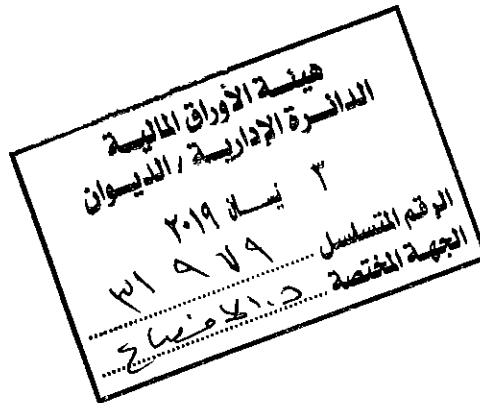 هيئة الأوراق المالية
الدائرة الإدارية / الديوان
٣ نيسان ٢٠١٩
الرقم المتسلسل ٣١٩٧٩
الجهة المختصة د.الافصاح